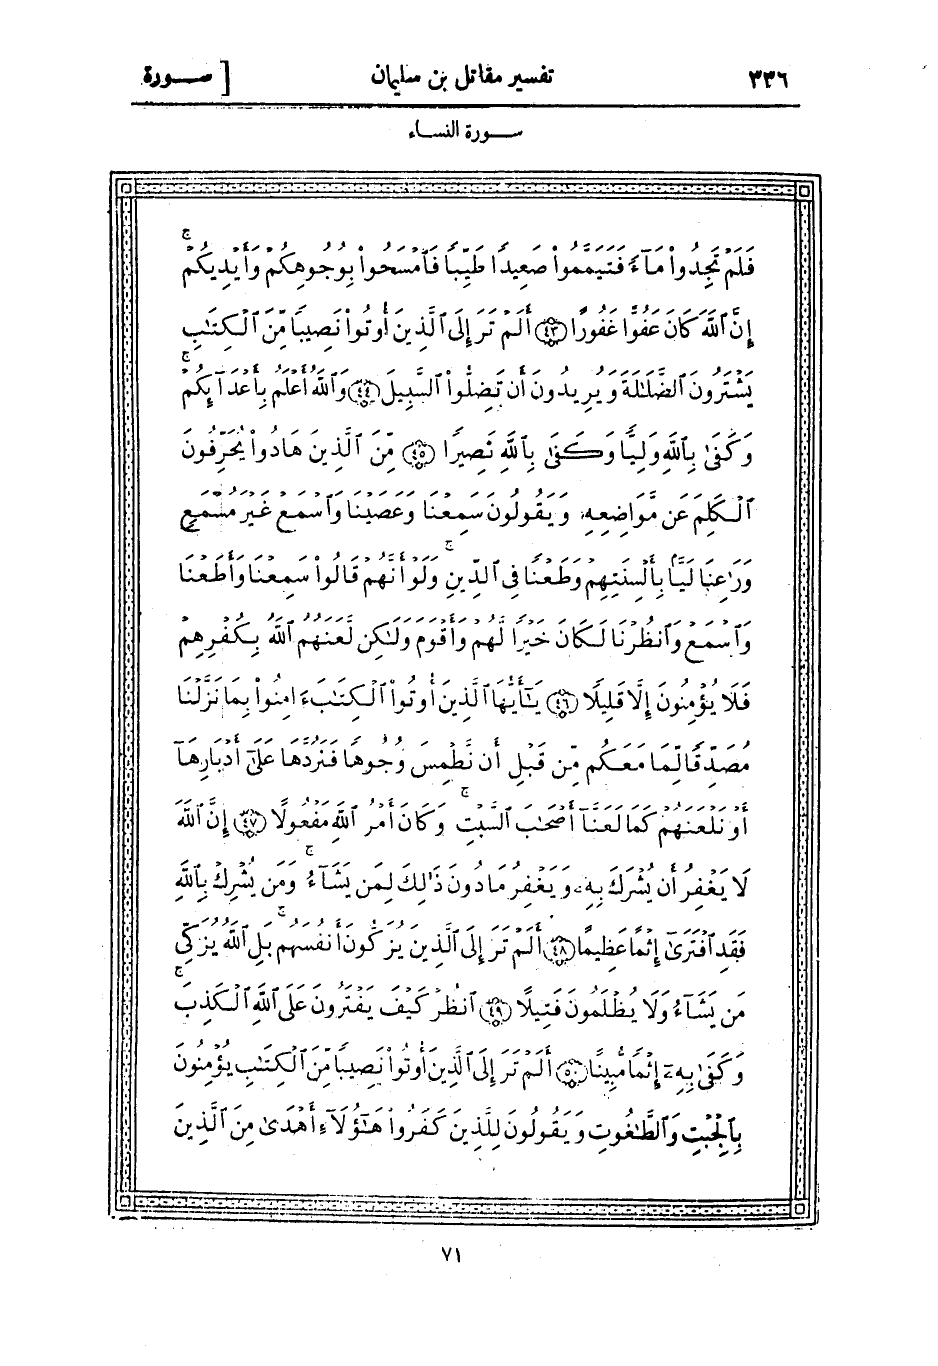 ٣٣٦ تفسير مقاتل بن سليمان [ سـورة
سـورة النساء
فَلَمْ تَجِدُوا۟ مَآءً فَتَيَمَّمُوا۟ صَعِيدًا طَيِّبًا فَٱمْسَحُوا۟ بِوُجُوهِكُمْ وَأَيْدِيكُمْ ۚ
إِنَّ ٱللَّهَ كَانَ عَفُوًّا غَفُورًا ﴿٤٣﴾ أَلَمْ تَرَ إِلَى ٱلَّذِينَ أُوتُوا۟ نَصِيبًا مِّنَ ٱلْكِتَٰبِ
يَشْتَرُونَ ٱلضَّلَٰلَةَ وَيُرِيدُونَ أَن تَضِلُّوا۟ ٱلسَّبِيلَ ﴿٤٤﴾ وَٱللَّهُ أَعْلَمُ بِأَعْدَآئِكُمْ ۚ
وَكَفَىٰ بِٱللَّهِ وَلِيًّا وَكَفَىٰ بِٱللَّهِ نَصِيرًا ﴿٤٥﴾ مِّنَ ٱلَّذِينَ هَادُوا۟ يُحَرِّفُونَ
ٱلْكَلِمَ عَن مَّوَاضِعِهِۦ وَيَقُولُونَ سَمِعْنَا وَعَصَيْنَا وَٱسْمَعْ غَيْرَ مُسْمَعٍ
وَرَٰعِنَا لَيًّۢا بِأَلْسِنَتِهِمْ وَطَعْنًا فِى ٱلدِّينِ ۚ وَلَوْ أَنَّهُمْ قَالُوا۟ سَمِعْنَا وَأَطَعْنَا
وَٱسْمَعْ وَٱنظُرْنَا لَكَانَ خَيْرًا لَّهُمْ وَأَقْوَمَ وَلَٰكِن لَّعَنَهُمُ ٱللَّهُ بِكُفْرِهِمْ
فَلَا يُؤْمِنُونَ إِلَّا قَلِيلًا ﴿٤٦﴾ يَٰٓأَيُّهَا ٱلَّذِينَ أُوتُوا۟ ٱلْكِتَٰبَ ءَامِنُوا۟ بِمَا نَزَّلْنَا
مُصَدِّقًا لِّمَا مَعَكُم مِّن قَبْلِ أَن نَّطْمِسَ وُجُوهًا فَنَرُدَّهَا عَلَىٰٓ أَدْبَارِهَآ
أَوْ نَلْعَنَهُمْ كَمَا لَعَنَّآ أَصْحَٰبَ ٱلسَّبْتِ ۚ وَكَانَ أَمْرُ ٱللَّهِ مَفْعُولًا ﴿٤٧﴾ إِنَّ ٱللَّهَ
لَا يَغْفِرُ أَن يُشْرَكَ بِهِۦ وَيَغْفِرُ مَا دُونَ ذَٰلِكَ لِمَن يَشَآءُ ۚ وَمَن يُشْرِكْ بِٱللَّهِ
فَقَدِ ٱفْتَرَىٰٓ إِثْمًا عَظِيمًا ﴿٤٨﴾ أَلَمْ تَرَ إِلَى ٱلَّذِينَ يُزَكُّونَ أَنفُسَهُم ۚ بَلِ ٱللَّهُ يُزَكِّى
مَن يَشَآءُ وَلَا يُظْلَمُونَ فَتِيلًا ﴿٤٩﴾ ٱنظُرْ كَيْفَ يَفْتَرُونَ عَلَى ٱللَّهِ ٱلْكَذِبَ ۚ
وَكَفَىٰ بِهِۦٓ إِثْمًا مُّبِينًا ﴿٥٠﴾ أَلَمْ تَرَ إِلَى ٱلَّذِينَ أُوتُوا۟ نَصِيبًا مِّنَ ٱلْكِتَٰبِ يُؤْمِنُونَ
بِٱلْجِبْتِ وَٱلطَّٰغُوتِ وَيَقُولُونَ لِلَّذِينَ كَفَرُوا۟ هَٰٓؤُلَآءِ أَهْدَىٰ مِنَ ٱلَّذِينَ
٧١